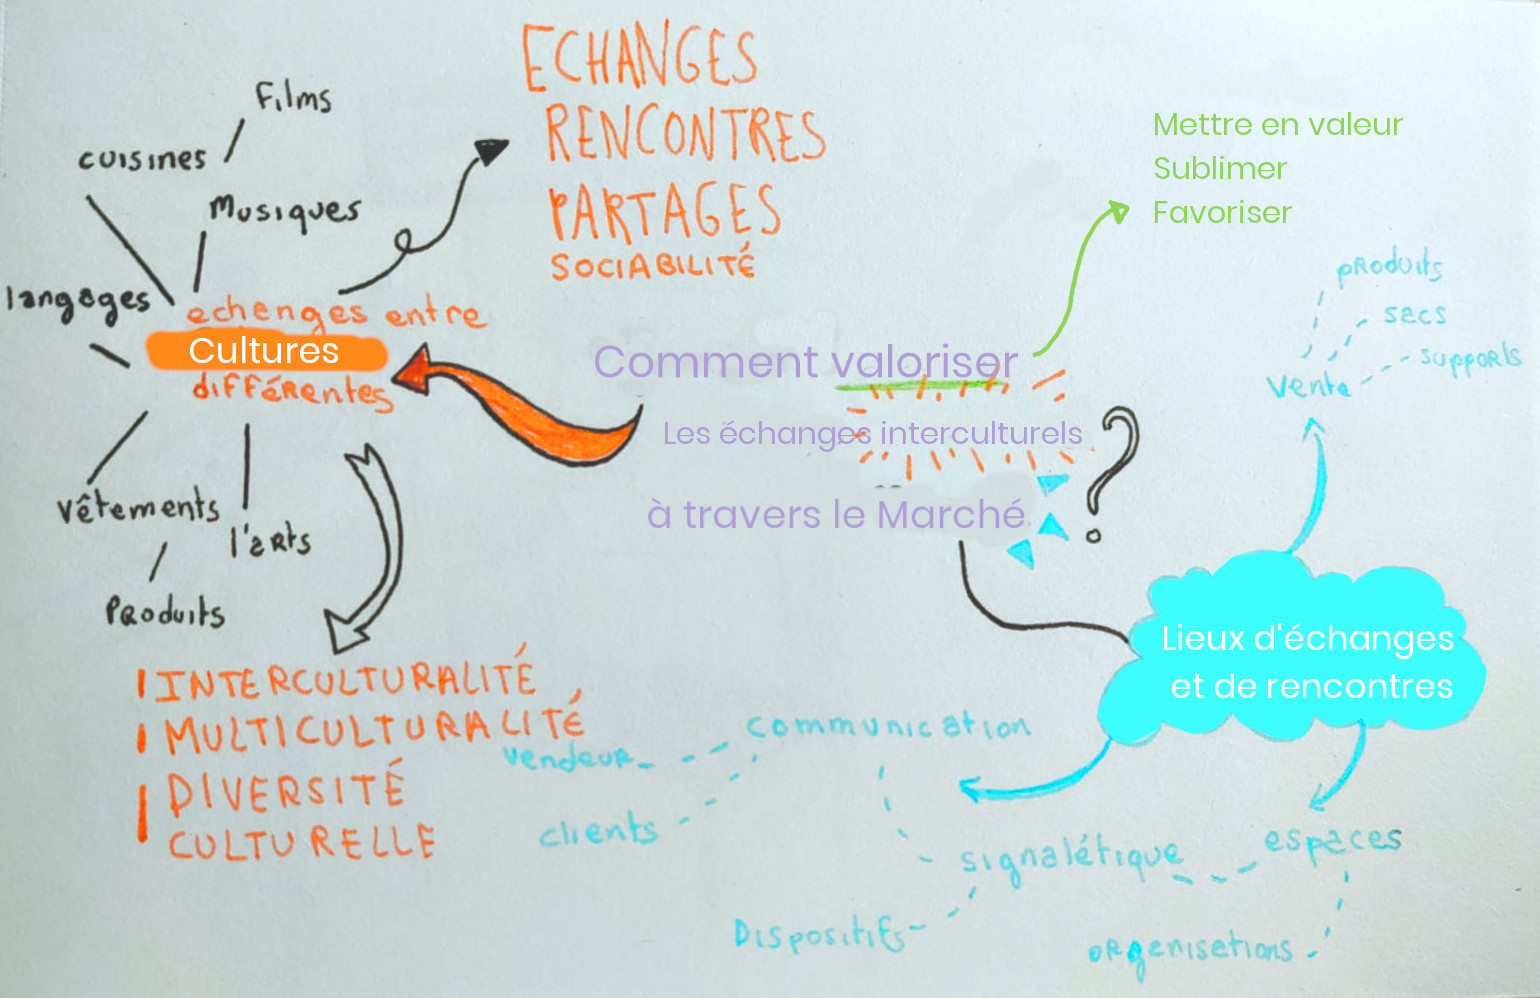 Films
cuisines
Musiques
langages
echenges entre
Cultures
différentes
vêtements
l'arts
Produits
ECHANGES
RENCONTRES
PARTAGES
SOCIABILITÉ
INTERCULTURALITÉ
MULTICULTURALITÉ
DIVERSITÉ
CULTURELLE
Comment valoriser
Les échanges interculturels
à travers le Marché
?
Mettre en valeur
Sublimer
Favoriser
produits
sacs
supports
Vente
Lieux d'échanges
et de rencontres
communication
vendeur
clients
signalétique
espaces
Dispositifs
organisations